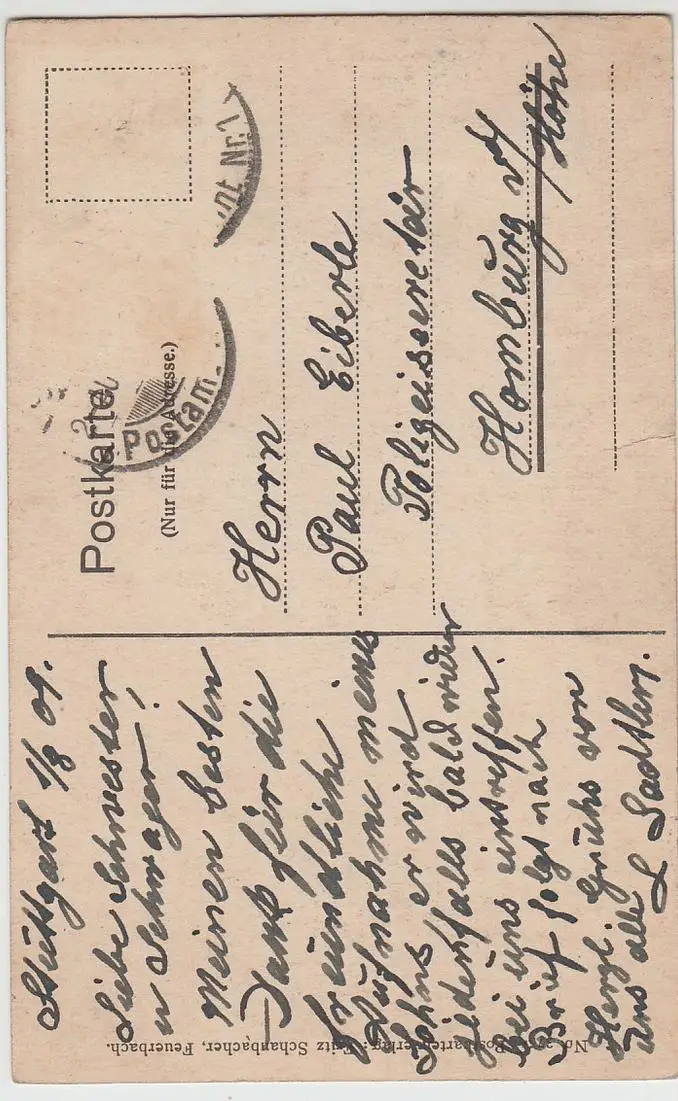 Stuttgart 1/8 09.
Liebe Schwester
u Schwager!
Meinen besten
Dank für die
freundliche
Aufnahme meines
Sohns er wird
jedenfalls bald wider
bei uns eintreffen.
Brief folgt nach
Herzl. Gruhs von
uns alle L
Postkarte
(Nur für die Adresse.)
Postam.
mt Nr. 1
Herrn
Paul Eiberle
Polizeisecretär
Homburg v/
Höhe
Postkartenverlag: Fritz Schanbacher, Feuerbach.